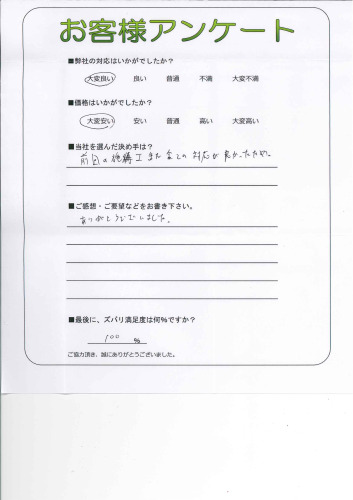 お客様アンケート
■弊社の対応はいかがでしたか?
大変良い 良い 普通 不満 大変不満
■価格はいかがでしたか?
大変安い 安い 普通 高い 大変高い
■当社を選んだ決め手は?
前回の 対応が良かったため。
■ご感想・ご要望などをお書き下さい。
ありがとうございました。
■最後に、ズバリ満足度は何%ですか?
100 %
ご協力頂き、誠にありがとうございました。